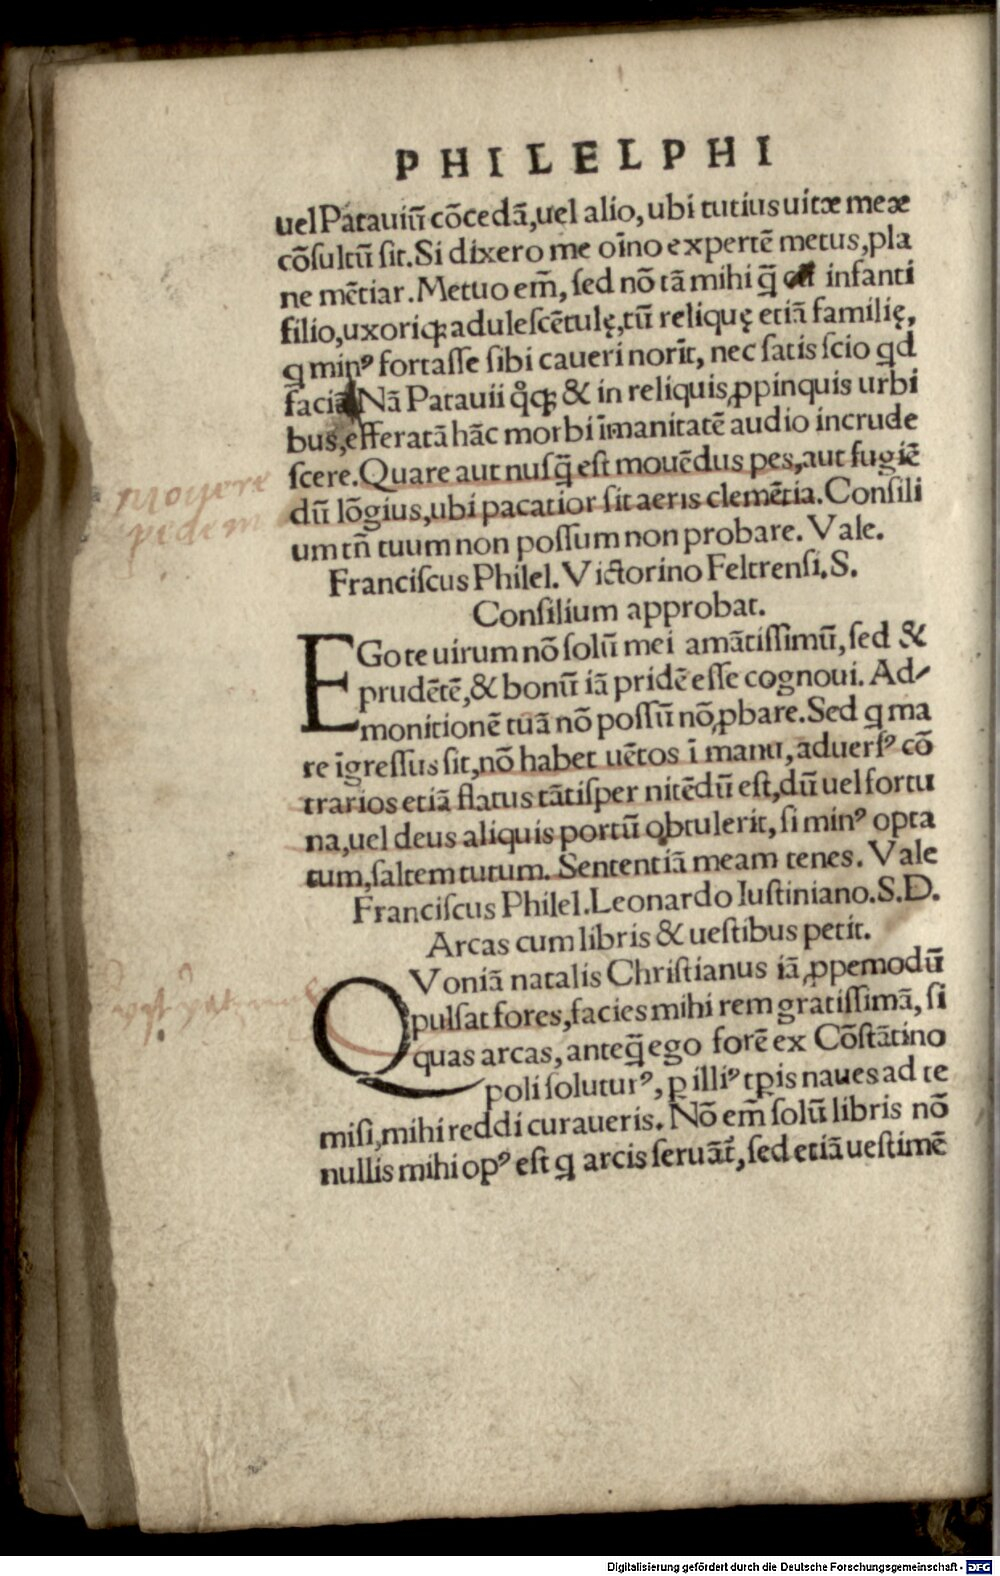 PHILELPHI
uel Patauiū cōcedā, uel alio, ubi tutius uitæ meæ
cōſultū ſit. Si dixero me oīno expertē metus, pla
ne mētiar. Metuo em̄, ſed nō tā mihi q̄ infanti
filio, uxoriq; adulescētulę, tū reliquę etiā familię,
q minꝰ fortaſſe ſibi caueri norīt, nec ſatis ſcio qd
faciā Nā Patauii q̊q; & in reliquis ꝓpinquis urbi
bus, efferatā hāc morbi īmanitatē audio incrude
ſcere. Quare aut nuſq̄ eſt mouēdus pes, aut fugiē
dū lōgius, ubi pacatior ſit aeris clemētia. Conſili
um tñ tuum non poſſum non probare. Vale.
Franciſcus Philel. Victorino Feltrenſi. S.
Conſilium approbat.
EGo te uirum nō ſolū mei amātiſſimū, ſed &
prudētē, & bonū iā pridē eſſe cognoui. Ad-
monitionē tuā nō poſſū nō ꝓbare. Sed q ma
re īgreſſus ſit, nō habet uētos ī manu, aduerſꝰ cō
trarios etiā flatus tātiſper nitēdū eſt, dū uel fortu
na, uel deus aliquis portū obtulerit, ſi minꝰ opta
tum, ſaltem tutum. Sententiā meam tenes. Vale
Franciſcus Philel. Leonardo Iuſtiniano. S. D.
Arcas cum libris & ueſtibus petit.
QVoniā natalis Chriſtianus iā ꝓpemodū
pulſat fores, facies mihi rem gratiſſimā, ſi
quas arcas, anteq̄ ego forē ex Cōſtātino
poli ſoluturꝰ, ꝑ illiꝰ tꝑis naues ad te
miſi, mihi reddi curaueris. Nō em̄ ſolū libris nō
nullis mihi opꝰ eſt q arcis ſeruāt̄, ſed etiā ueſtimē
mouere
pedem
Digitalisierung gefördert durch die Deutsche Forschungsgemeinschaft - DFG